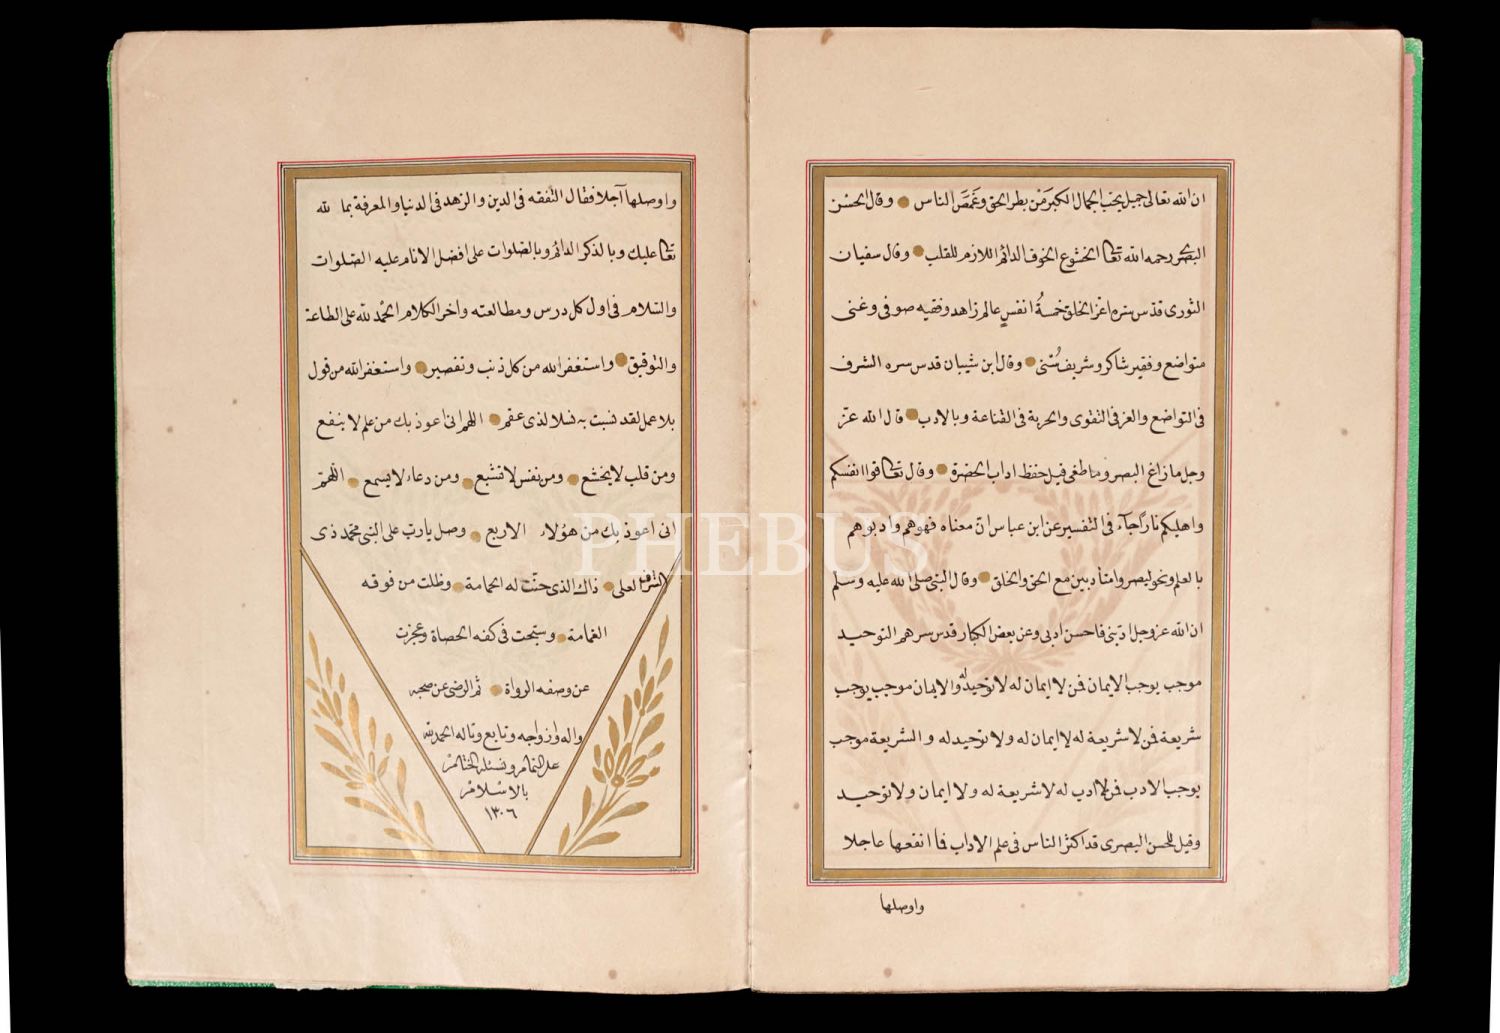 ان الله تعالى جميل يحب الجمال الكبر مَن بطر الحق وغمصَ الناس وقال الحسن
البصرى رحمه الله تعالى الخشوع الخوف الدائم اللازم للقلب وقال سفيان
الثورى قدس سره اعز الخلق خمسةُ انفسٍ عالم زاهد وفقيه صوفى وغنى
متواضع وفقير شاكر وشريف سُنّى وقال ابن شيبان قدس سره الشرف
فى التواضع والعز فى التقوى والحرية فى القناعة وبالادب قال الله عزّ
وجل مازاغ البصر وماطغى قيل حفظ اداب الحضرة وقال تعالى قوا انفسكم
واهليكم ناراً جآء فى التفسير عن ابن عباس انّ معناه فقهوهم وادبوهم
بالعلم وقال النبى صلى الله عليه وسلم
ان الله عز وجل ادبنى فاحسن ادبى وعن بعض الكبار قدس سرهم التوحيد
موجب يوجب الايمان فمن لا ايمان له لا توحيد له والايمان موجب يوجب
شريعة فمن لا شريعة له لا ايمان له ولا توحيد له والشريعة موجب
يوجب الادب فمن لا ادب له لا شريعة له ولا ايمان ولا توحيد
وقيل للحسن البصرى قد اكثر الناس فى علم الاداب فما انفعها عاجلا
واوصلها
واوصلها آجلا فقال التفقه فى الدين والزهد فى الدنيا والمعرفة بما لله
تعالى عليك وبالذكر الدائم وبالصلوات على افضل الانام عليه الصلوات
والسلام فى اول كل درس ومطالعته واخر الكلام الحمد لله على الطاعة
والتوفيق واستغفر الله من كل ذنب وتقصير واستغفر الله من قول
بلا عمل لقد نسبت به نسلا لذى عقم اللهم انى اعوذ بك من علم لا ينفع
ومن قلب لا يخشع ومن نفس لا تشبع ومن دعاء لا يسمع اللّهمّ
انى اعوذ بك من هؤلاء الاربع وصل يارب على النبى محمد ذى
الشرف العلى ذاك الذى حنّت له الحمامة وظلت من فوقه
الغمامة وسبحت فى كفه الحصاة وعجزت
عن وصفه الرواة ثم الرضى عن صحبه
واله وازواجه وتابع وتاله الحمد لله
على التمام ونسئله الختام
بالاسلام
١٣٠٦
PHEBUS